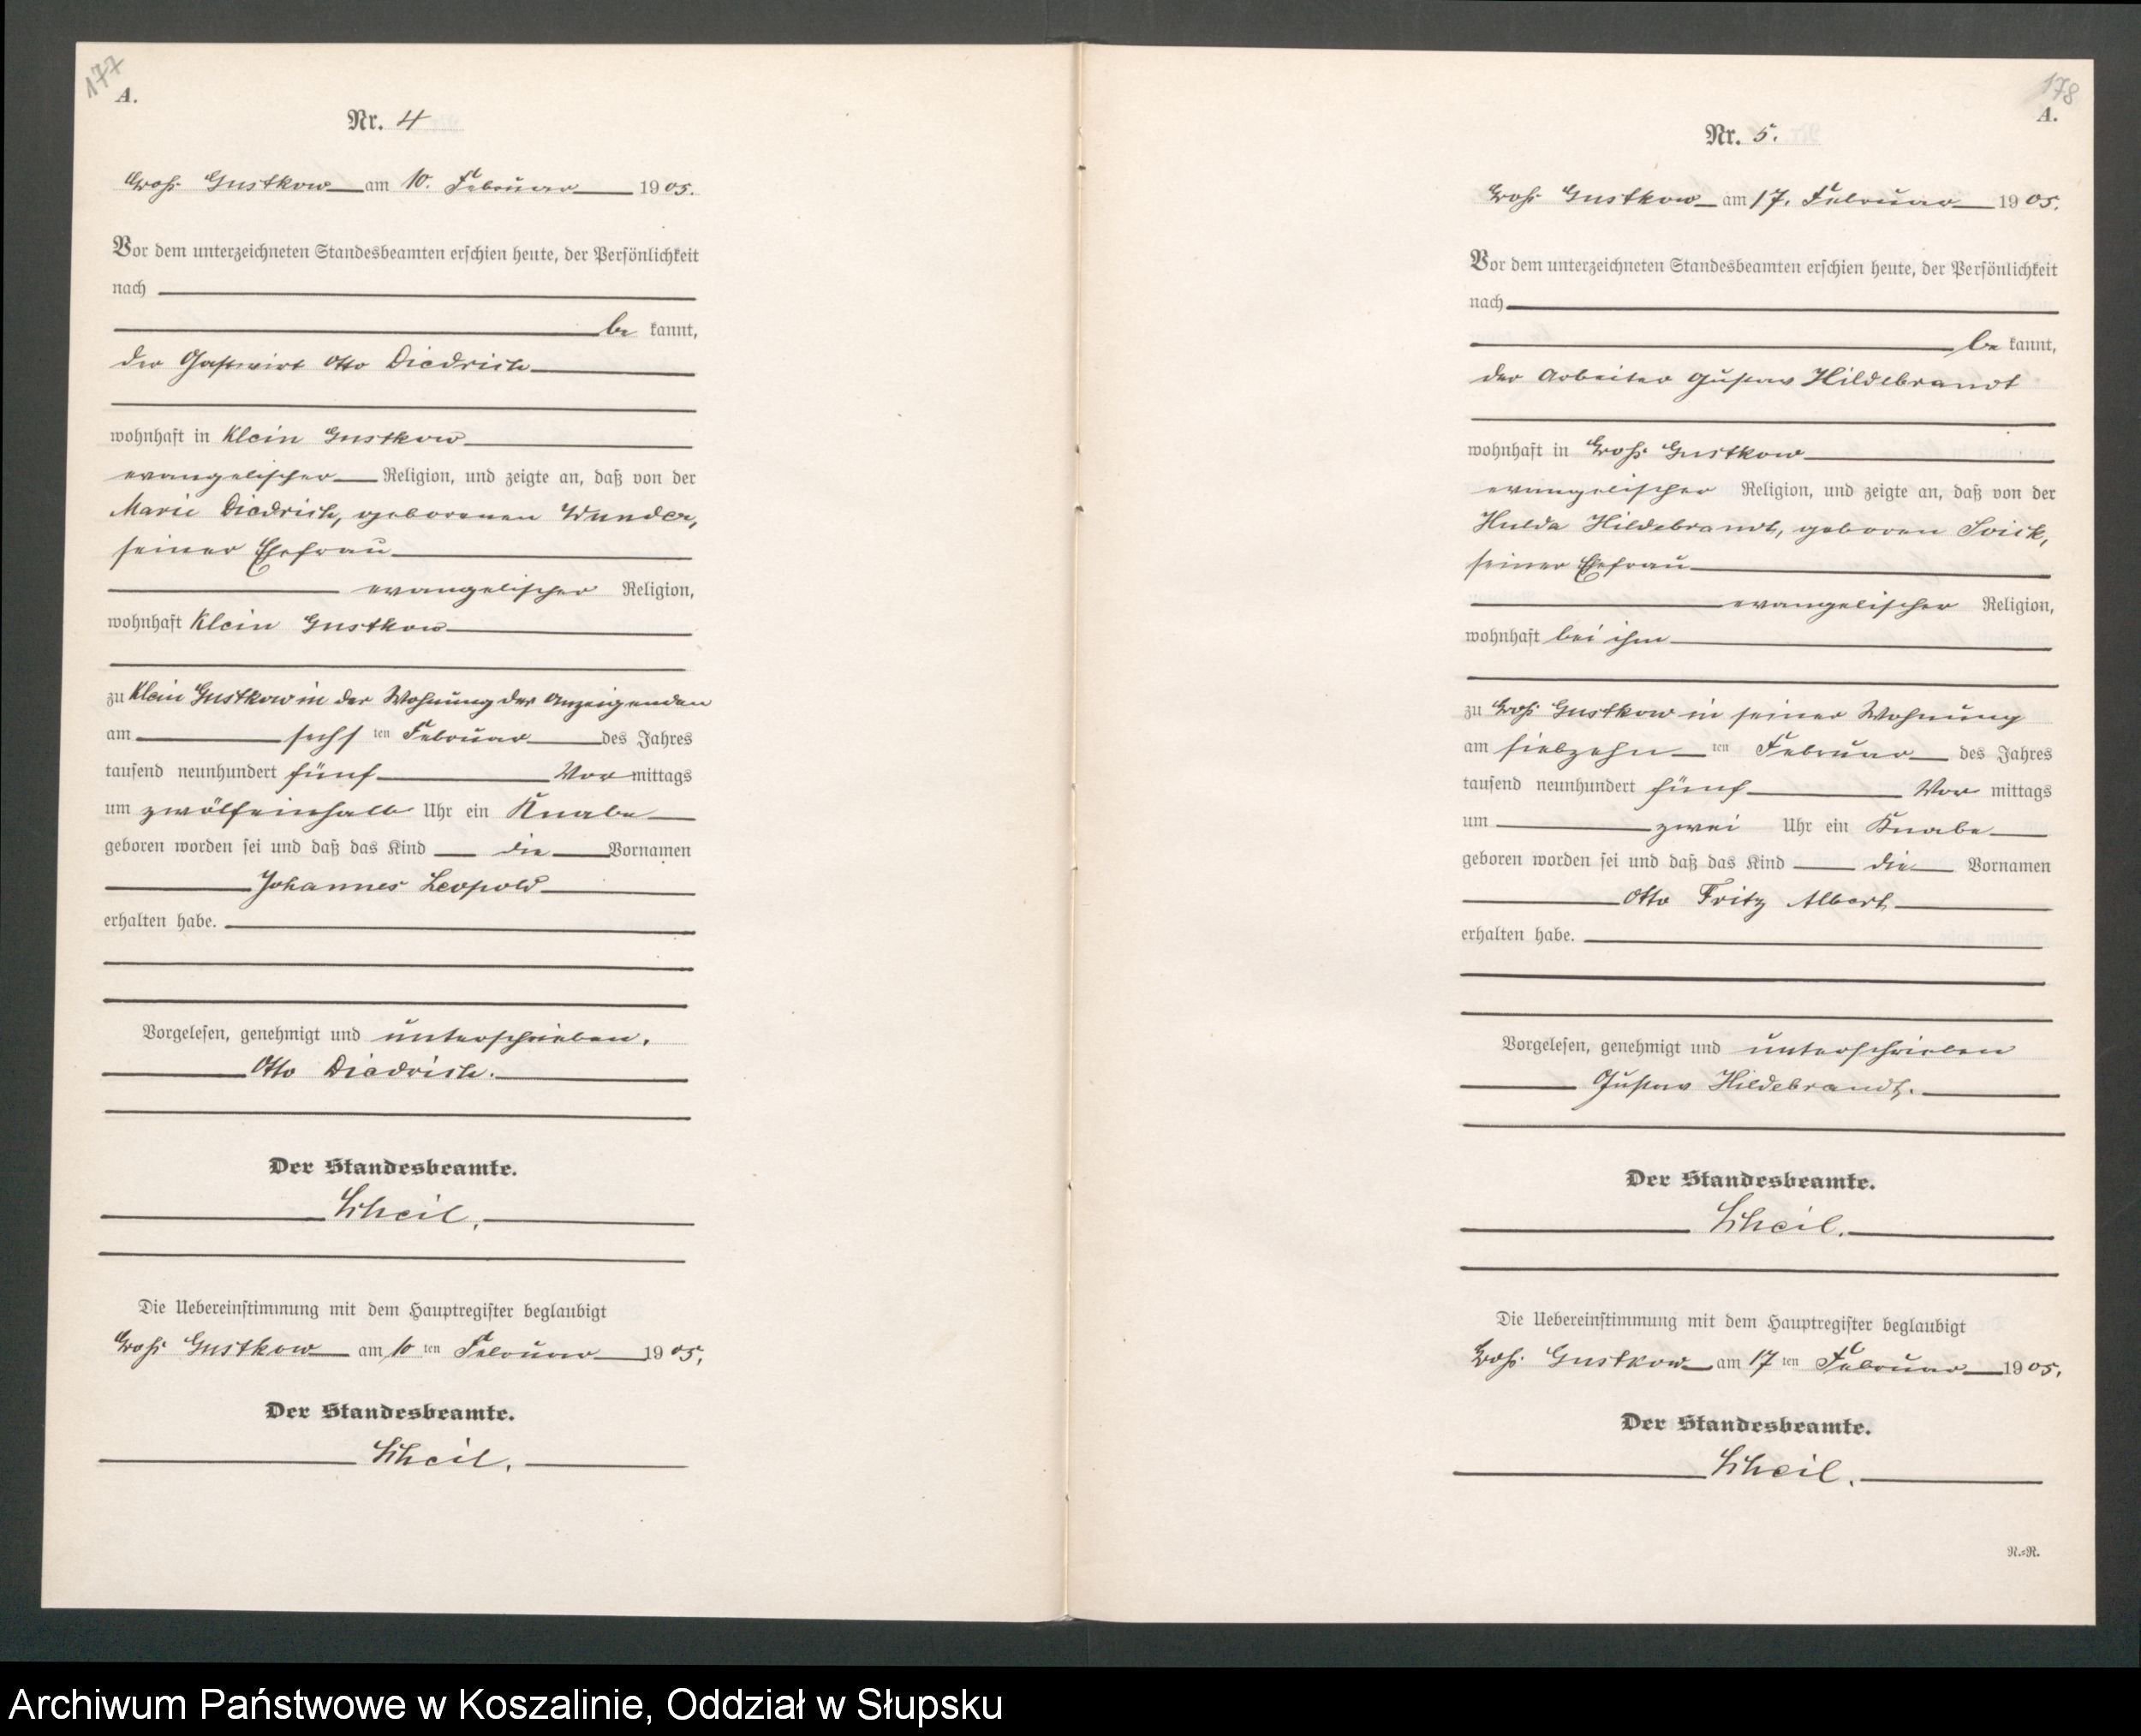 177
A.
Nr. 4
Groß Gustkow am 10. Februar 1905.
Vor dem unterzeichneten Standesbeamten erschien heute, der Persönlichkeit
nach
be kannt,
der Gastwirt Otto Diedrich
wohnhaft in Klein Gustkow
evangelischer Religion, und zeigte an, daß von der
Marie Diedrich, geborenen Wunder,
seiner Ehefrau
evangelischer Religion,
wohnhaft Klein Gustkow
zu Klein Gustkow in der Wohnung des Anzeigenden
am sechs ten Februar des Jahres
tausend neunhundert fünf Vor mittags
um zwölfeinhalb Uhr ein Knabe
geboren worden sei und daß das Kind die Vornamen
Johannes Leopold
erhalten habe.
Vorgelesen, genehmigt und unterschrieben.
Otto Diedrich.
Der Standesbeamte.
Scheil.
Die Uebereinstimmung mit dem Hauptregister beglaubigt
Groß Gustkow am 10 ten Februar 1905.
Der Standesbeamte.
Scheil.
178
A.
Nr. 5.
Groß Gustkow am 17. Februar 1905.
Vor dem unterzeichneten Standesbeamten erschien heute, der Persönlichkeit
nach
be kannt,
der Arbeiter Gustav Hildebrandt
wohnhaft in Groß Gustkow
evangelischer Religion, und zeigte an, daß von der
Hulda Hildebrandt, geboren
seiner Ehefrau
evangelischer Religion,
wohnhaft bei ihm
zu Groß Gustkow in seiner Wohnung
am siebzehn ten Februar des Jahres
tausend neunhundert fünf Vor mittags
um zwei Uhr ein Knabe
geboren worden sei und daß das Kind die Vornamen
Otto Fritz Albert
erhalten habe.
Vorgelesen, genehmigt und unterschrieben
Gustav Hildebrandt.
Der Standesbeamte.
Scheil.
Die Uebereinstimmung mit dem Hauptregister beglaubigt
Groß Gustkow am 17 ten Februar 1905.
Der Standesbeamte.
Scheil.
N.=N.
Archiwum Państwowe w Koszalinie, Oddział w Słupsku